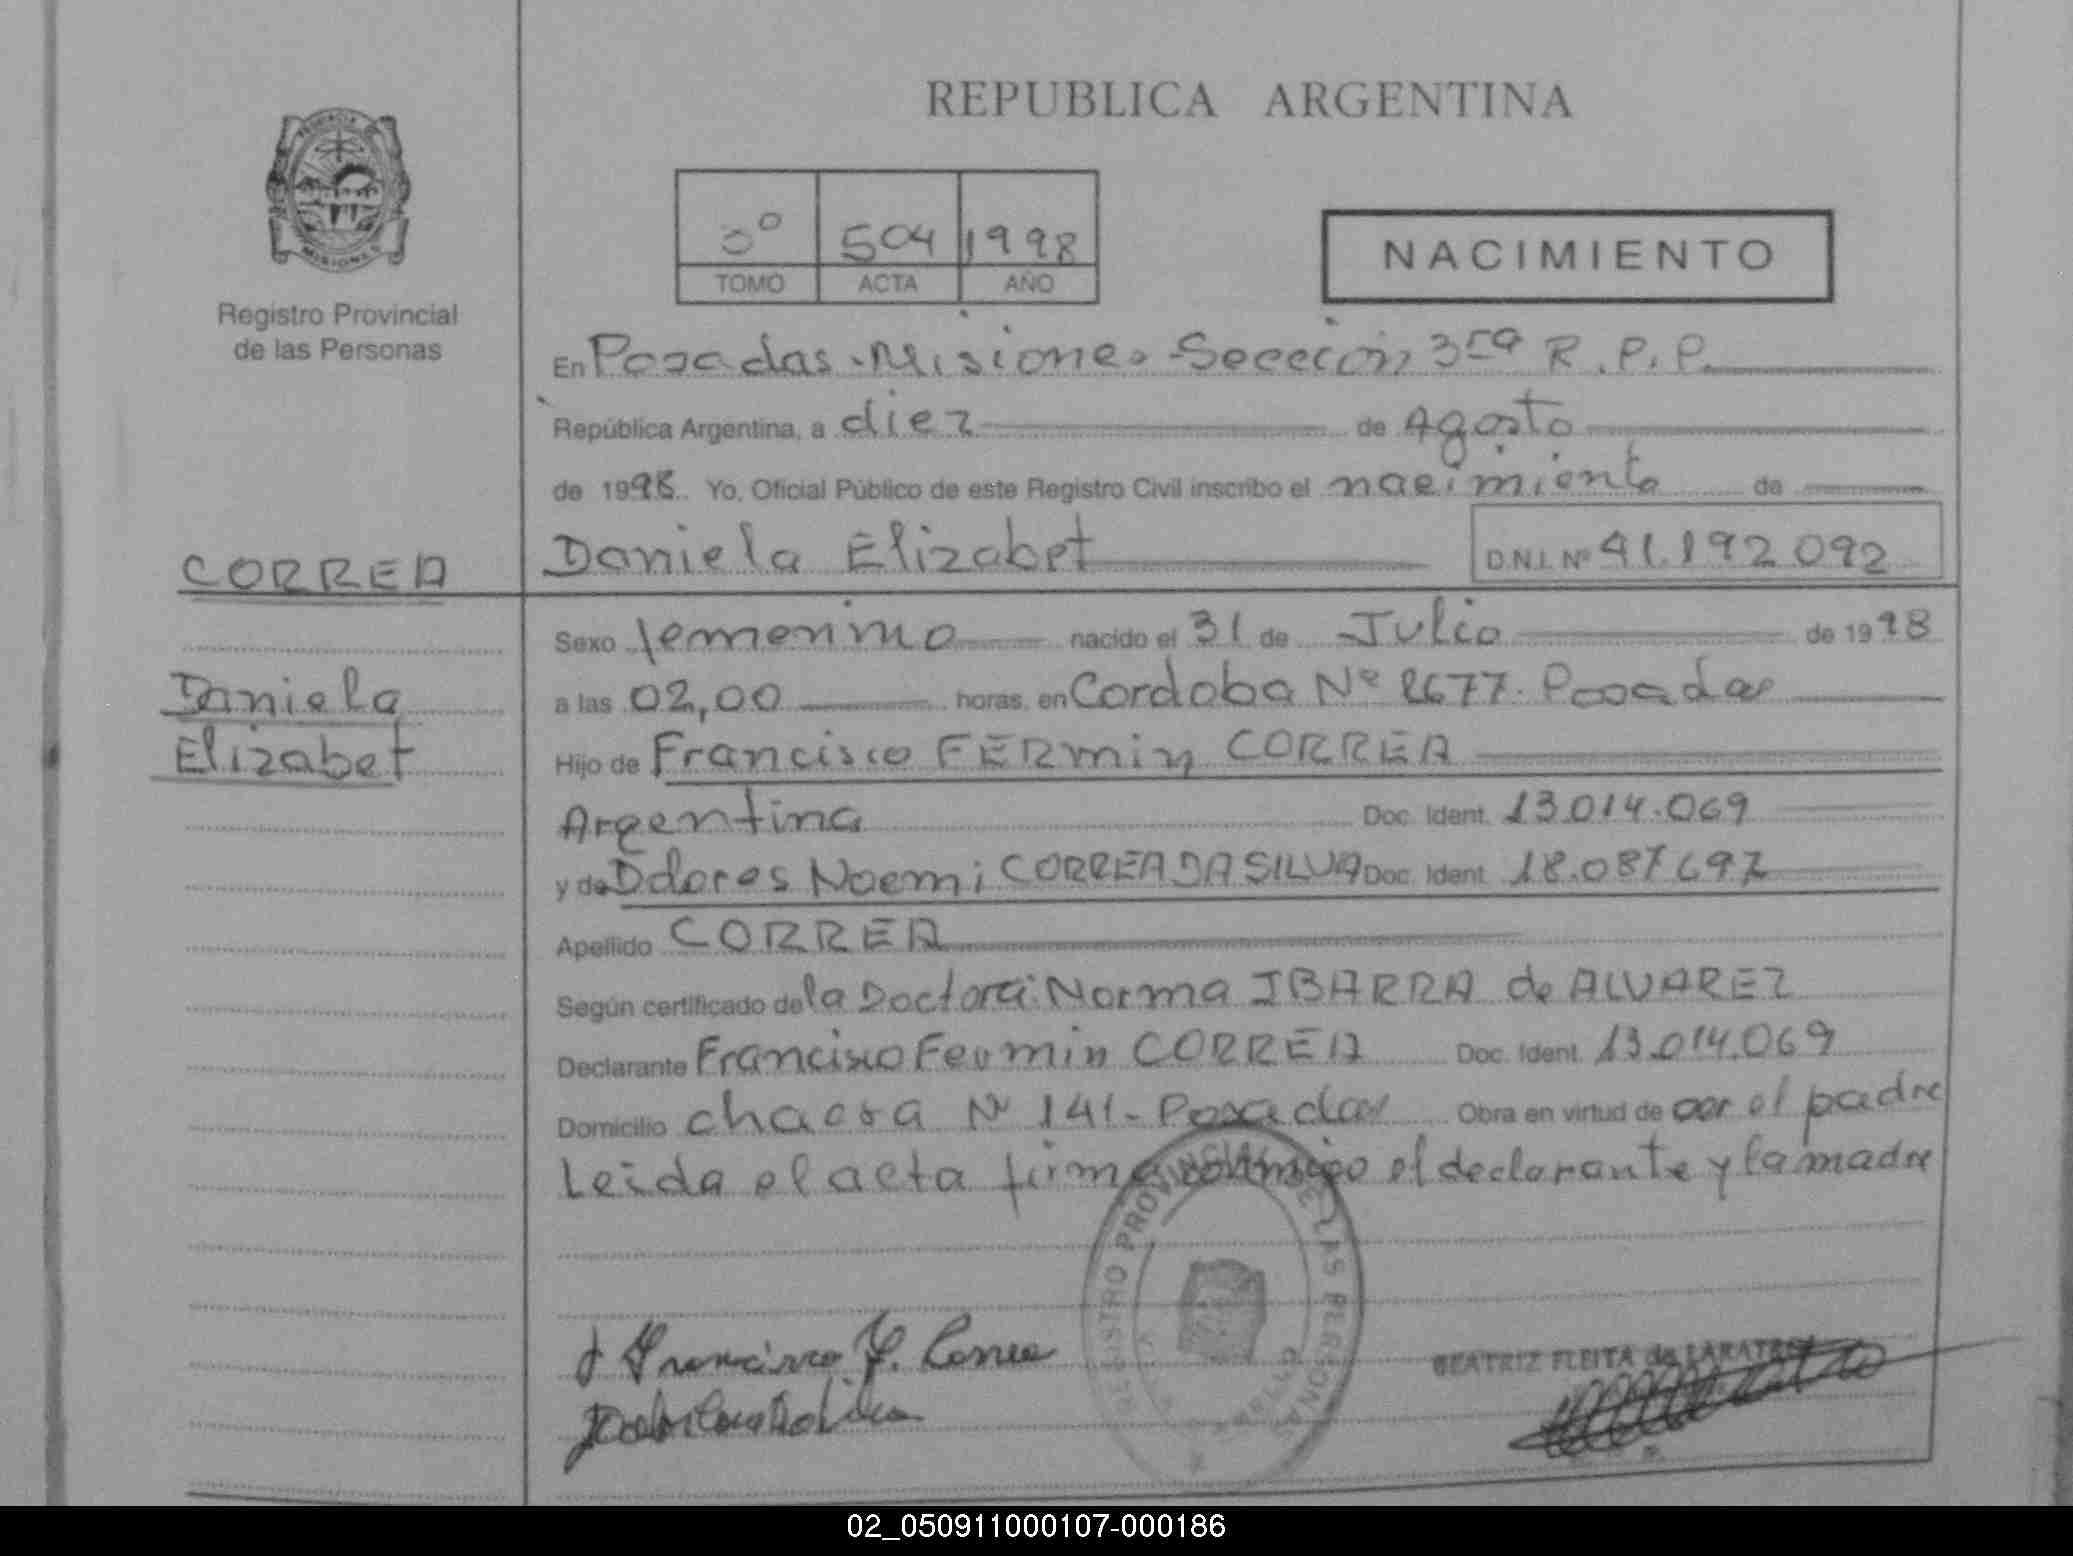 REPUBLICA ARGENTINA
PROVINCIA DE
MISIONES
Registro Provincial
de las Personas
504 1998
TOMO ACTA AÑO
NACIMIENTO
En Posadas - Misiones - Sección 3ra R.P.P.
República Argentina, a diez de Agosto
de 1998. Yo, Oficial Público de este Registro Civil inscribo el nacimiento de
CORREA
Daniela Elizabet D.N.I. Nº 41.192 092
Sexo femenino nacido el 31 de Julio de 1998
Daniela
Elizabet
a las 02,00 horas, en Cordoba Nº 2677. Posadas
Hijo de Francisco FERmin CORREA
Argentina Doc. Ident. 13.014.069
y de Dolores Noemi CORREA DA SILVA Doc. Ident. 18.087 697
Apellido CORREA
Según certificado de la Doctora: Norma IBARRA de ALVAREZ
Declarante Francisco Fermin CORREA Doc. Ident. 13.014.069
Domicilio chacra Nº 141 - Posadas Obra en virtud de ser el padre
Leida el acta firma conmigo el declarante y la madre
REGISTRO PROVINCIAL DE LAS PERSONAS
Francisco F. Correa
BEATRIZ FLEITA de
02_050911000107-000186